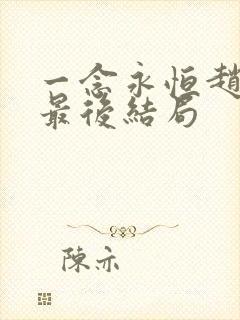 一念永恒趙
最後結局
陳亦